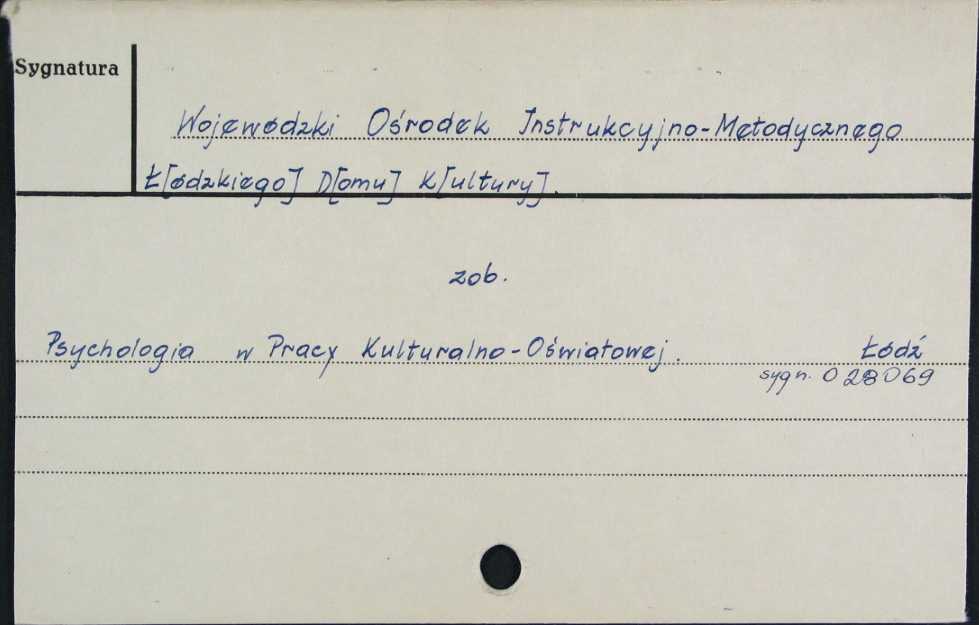 Sygnatura
Wojewódzki Ośrodek Instrukcyjno-Metodycznego
Ł[ódzkiego] D[omu] K[ultury].
zob.
Psychologia w Pracy Kulturalno-Oświatowej. Łódź
sygn. 028069